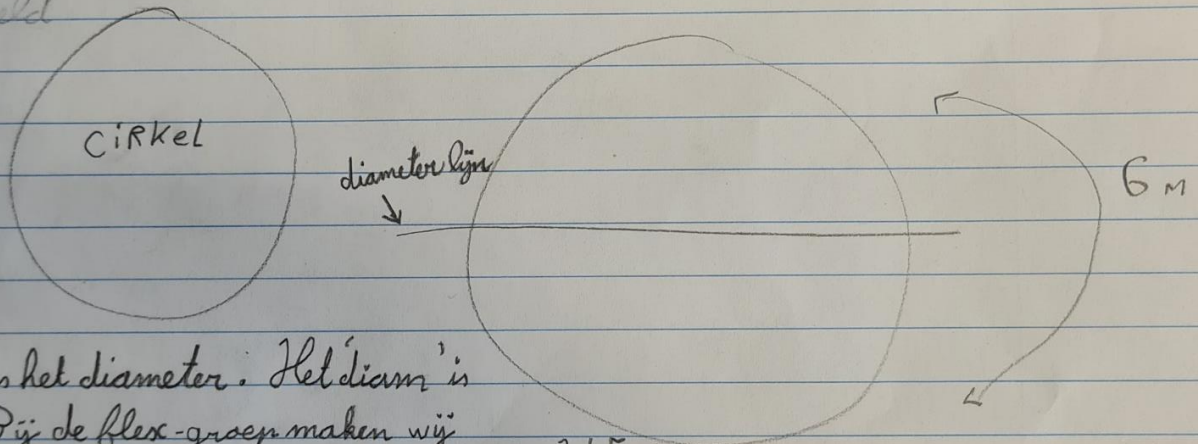 CiRKel
diameter lijn
6 M
het diameter. Het 'diam' is
Bij de flex-groep maken wij